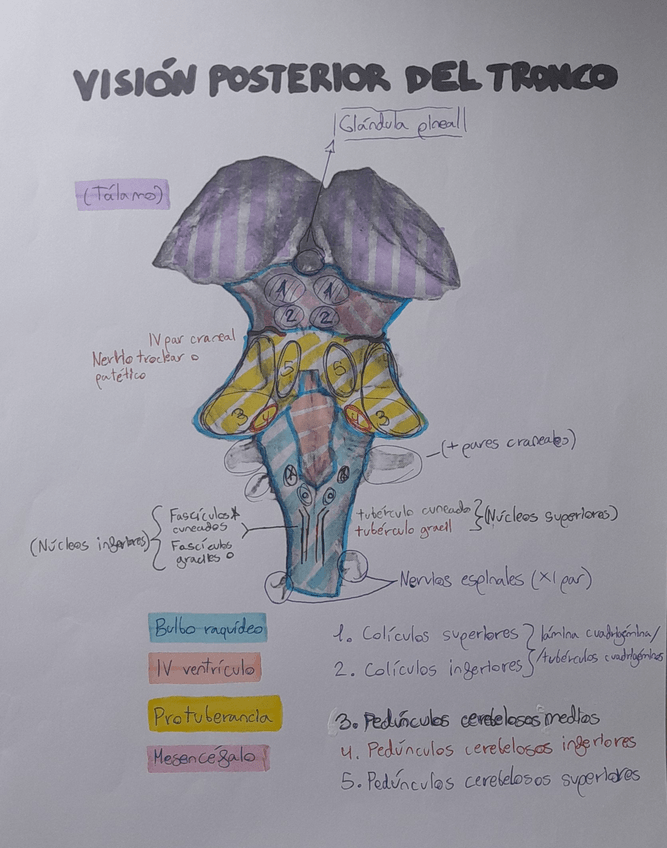 VISIÓN POSTERIOR DEL TRONCO
Glándula pineal
(Tálamo)
1 1
2 2
IV par craneal
Nervio troclear o
patético
5 5
3 4 4 3
(+ pares craneales)
Fascículos *
cuneados
Fascículos
graciles o
(Núcleos inferiores)
tubérculo cuneado
tubérculo gracil
(Núcleos superiores)
Nervios espinales (x1 par)
Bulbo raquídeo
IV ventrículo
Protuberancia
Mesencéfalo
1. Colículos superiores
2. Colículos inferiores
lámina cuadrigémina/
/tubérculos cuadrigéminos
3. Pedúnculos cerebelosos medios
4. Pedúnculos cerebelosos inferiores
5. Pedúnculos cerebelosos superiores